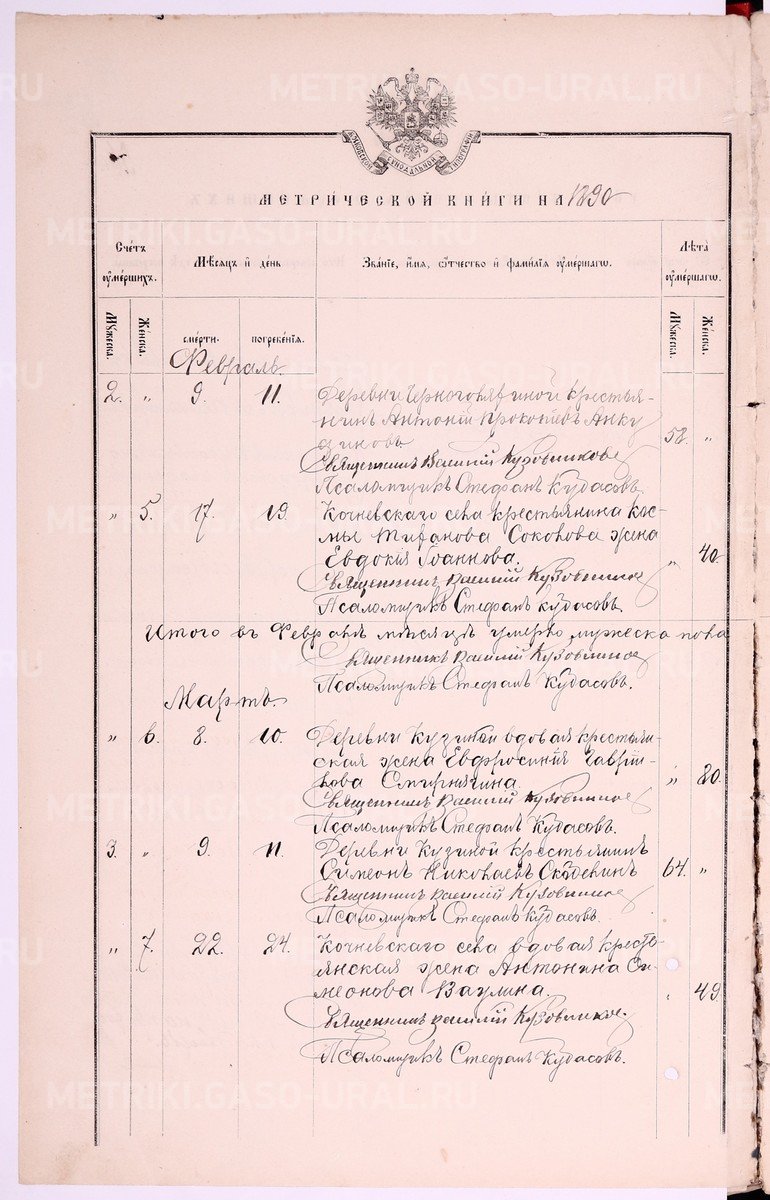 МОСКОВСКОЙ СѴНОДАЛЬНОЙ ТИПОГРАФІИ
МЕТРИ́ЧЕСКОЙ КНИ́ГИ НА 1890
Сче́тъ ᲂу҆ме́ршихъ.
Мѣ́сѧцъ и҆ де́нь
Зва́нїе, и҆́мѧ, ѻ҆́тчество и҆ фами́лїѧ ᲂу҆ме́ршагѡ.
Лѣ́та ᲂу҆ме́ршагѡ.
Мꙋ́жеска.
Же́нска.
сме́рти.
погребе́нїѧ.
Мꙋ́жеска.
Же́нска.
Февраль.
2. " 9. 11. Деревни крестья-
нинъ Антоній Прокопьевъ Анку
диновъ. 58. "
Священникъ Василій Кузовниковъ
Псаломщикъ Стефанъ Кудасовъ.
" 5. 17. 19. Кочневскаго села крестьянина Кос-
мы Соколова жена
Евдокія Іоаннова. " 40.
Священникъ Василій Кузовниковъ
Псаломщикъ Стефанъ Кудасовъ
Итого въ Февралѣ мѣсяцѣ умерло мужеска пола
Священникъ Василій Кузовниковъ
Псаломщикъ Стефанъ Кудасовъ.
Мартъ.
" 6. 8. 10. Деревни Кузиной вдовая крестьян-
ская жена Евфросинія Гаврїи-
лова Смирнягина. " 80.
Священникъ Василій Кузовниковъ
Псаломщикъ Стефанъ Кудасовъ.
3. " 9. 11. Деревни Кузиной крестьянинъ
Симеонъ Николаевъ 64. "
Священникъ Василій Кузовниковъ
Псаломщикъ Стефанъ Кудасовъ.
" 7. 22. 24. Кочневскаго села вдовая кресть-
янская жена Антонина Си-
меонова Ваулина. " 49.
Священникъ Василій Кузовниковъ.
Псаломщикъ Стефанъ Кудасовъ.
METRIKI.GASO-URAL.RU